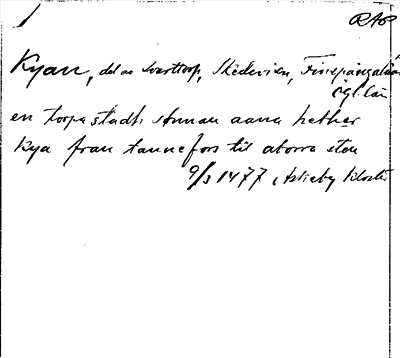 RAP
Kyan, del av Svarttorp, Skedevien, Finspångalän
Ögl. län
en torpastadh Annan aana hether
Kya fran tannefors til aborra sten
9/3 1477, Askeby kloster